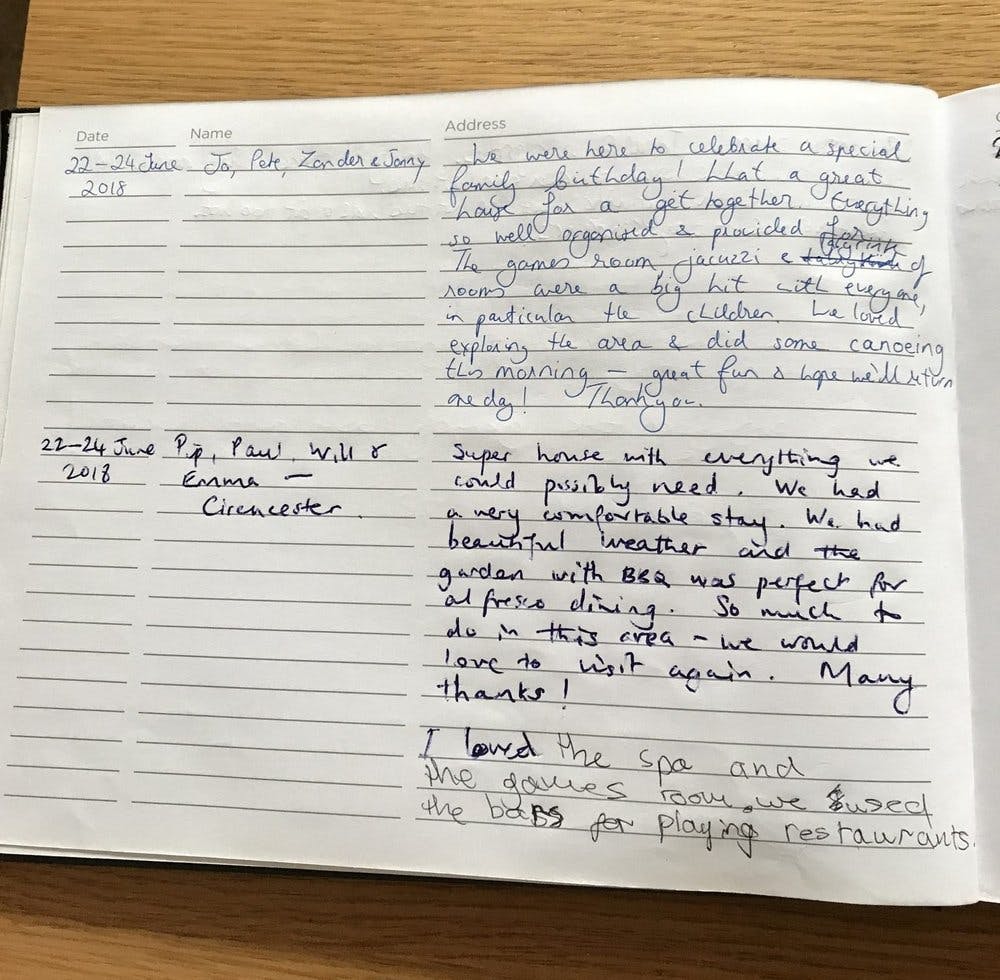 Date Name Address
22-24 June Jo, Pete, Zander & Jonny We were here to celebrate a special
2018 family birthday! What a great
house for a get together. Everything
so well organised & provided for.
The games room, jacuzzi & of
rooms were a big hit with everyone,
in particular the children. We loved
exploring the area & did some canoeing
this morning – great fun & hope we'll return
one day! Thankyou.
22-24 June Pip, Paul, Will & Super house with everything we
2018 Emma – could possibly need. We had
Cirencester. a very comfortable stay. We had
beautiful weather and the
garden with BBQ was perfect for
al fresco dining. So much to
do in this area – we would
love to visit again. Many
thanks!
I loved the spa and
the games room, we used
the for playing restaurants.